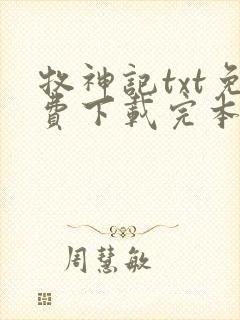 牧神記txt免
費下載完本
周慧敏